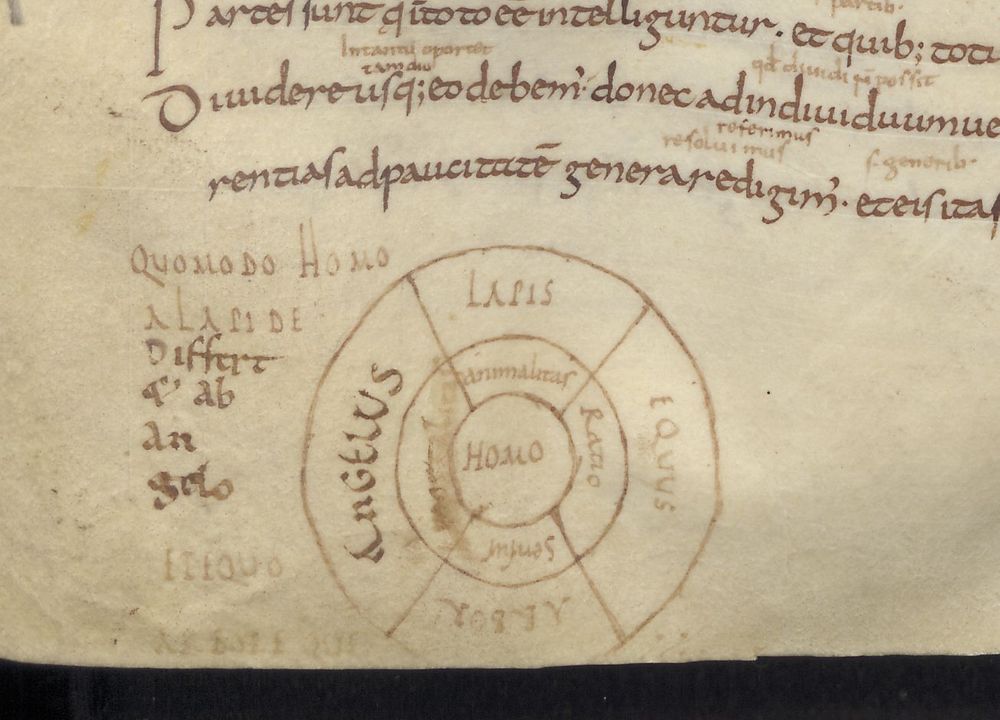 partib·
Partes sunt q͛ i toto eē intelliguntur. et quib; toti
Intantū oportet
tamdiu
qđ diuidi nō possit
Diuidere usq; eo debem᷒ donec ad indiuiduum ue
referimus
resoluimus
s. generib·
rentias ad paucitatē genera redigim᷒. et eis itas
QUOMODO HOMO
A LAPIDE
Differt
& ab
an
gelo
LAPIS
animalitas
ANGELUS
HOMO
Ratio
EQUUS
Sensus
ARBOR